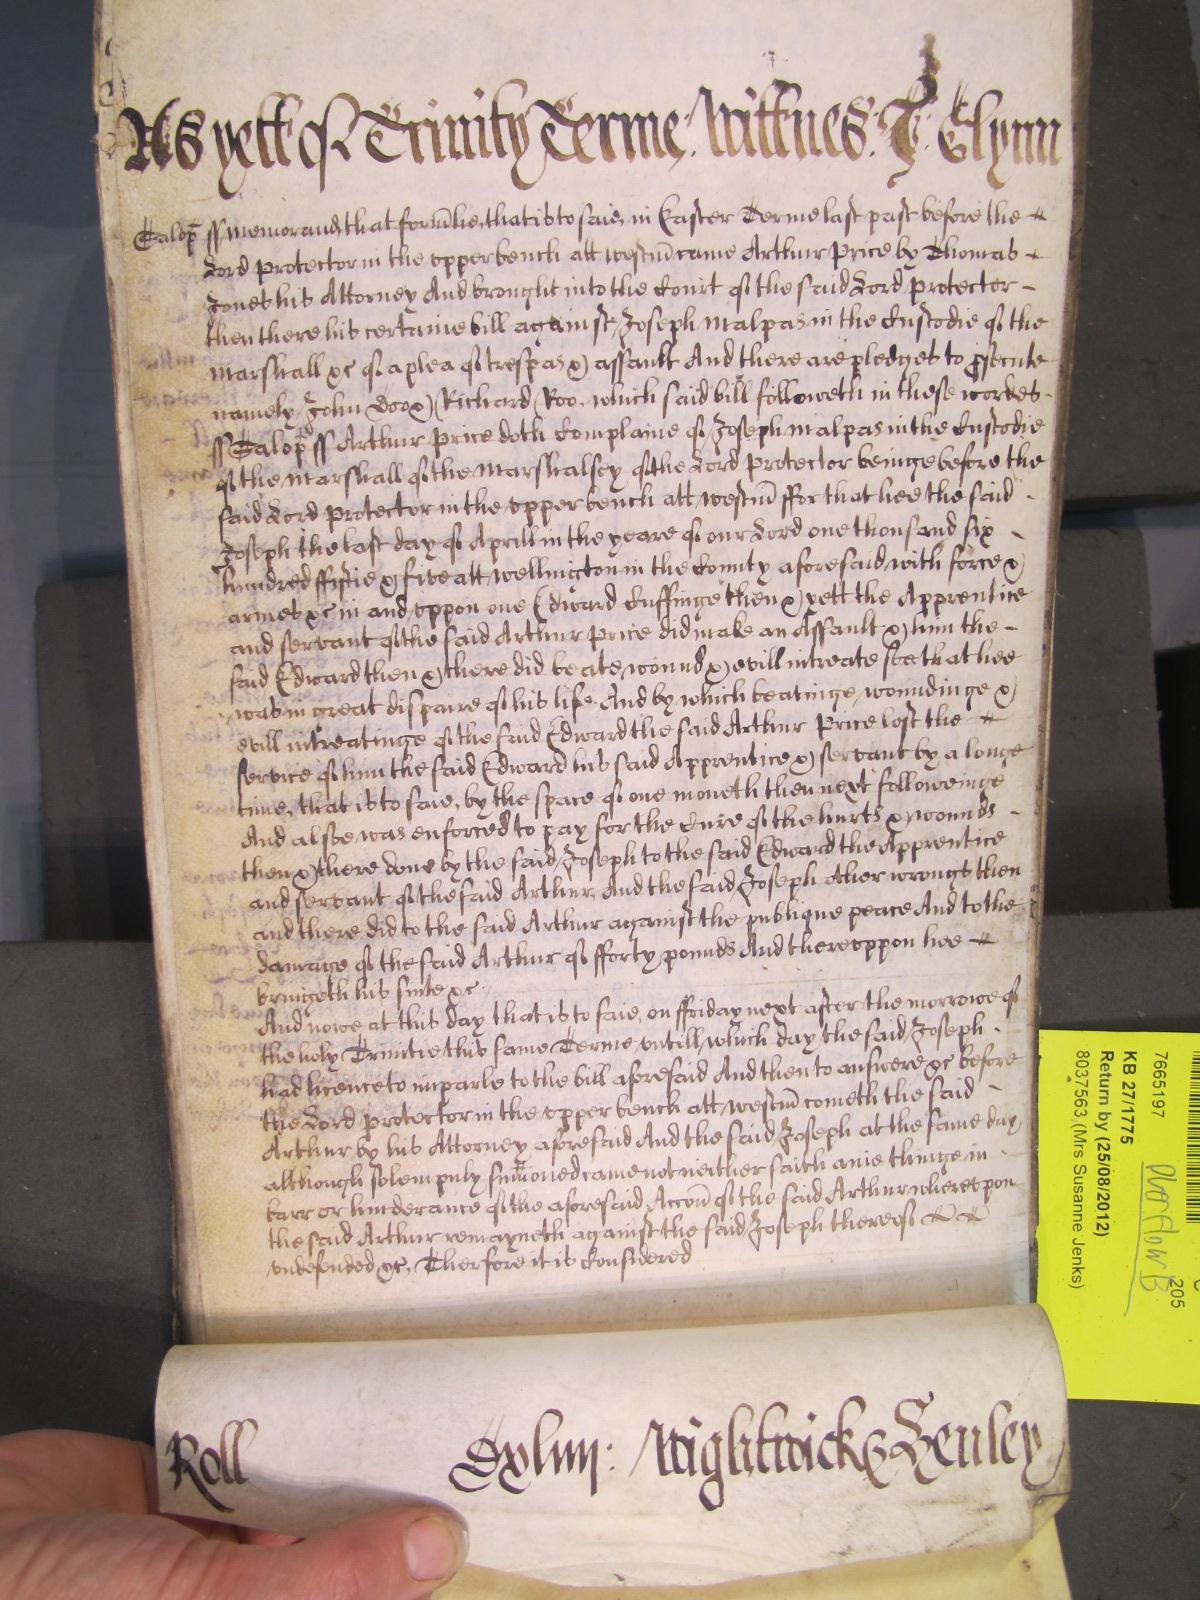 As yett of Trinity Terme: Wittnes: J: Glynn
Salop ss Memorand that formlie, that is to saie, in Easter Terme last past before the
Lord Protector in the upper bench att westm came Arthur Price by Thomas
Jones his Attorney And brought into the Court of the said Lord Protector
then there his certaine bill against Joseph Malpas in the Custodie of the
Marshall &c of a plea of trespas & assault And there are pledges to psecute
namely John Doo & Richard Roo. which said bill followeth in these wordes
ss Salop ss Arthur Price doth Complaine of Joseph Malpas in the Custodie
of the Marshall of the Marshalsey of the Lord Protector beinge before the
said Lord Protector in the upper bench att westm ffor that hee the said
Joseph the last day of Aprill in the yeare of our Lord one thousand six
hundred ffiftie & five att wellington in the County aforesaid with force &
armes &c in and uppon one Edward Cuffinge then & yett the Apprentice
and servant of the said Arthur Price did make an Assault & him the
said Edward then & there did beate wound & evill intreate soe that hee
was in great dispaire of his life And by which beatinge, woundinge &
evill intreatinge of the said Edward the said Arthur Price lost the
service of him the said Edward his said Apprentice & servant by a longe
time, that is to saie, by the space of one moneth then next followeinge
And alsoe was enforced to pay for the Cure of the hurts & wounds
then & there done by the said Joseph to the said Edward the Apprentice
and servant of the said Arthur, And the said Joseph other wrongs then
and there did to the said Arthur against the publique peace And to the
damage of the said Arthur of fforty pounds And thereuppon hee
bringeth his suite &c
And nowe at this day that is to saie, on ffriday next after the morrowe of
the holy Trinitie this same Terme, untill which day the said Joseph
had licence to imparle to the bill aforesaid And then to answere &c before
the Lord Protector in the upper bench att westm cometh the said
Arthur by his Attorney aforesaid And the said Joseph at the same day
although solempnly sumoned came not neither saith anie thinge in
barr or hinderance of the aforesaid Accon of the said Arthur whereupon
the said Arthur remayneth against the said Joseph thereof
undefended &c, Therfore it is Considered
Roll Wightwick & Henley
7665197
KB 27/1775
Return by (25/08/2012)
8037563 (Mrs Susanne Jenks)
205